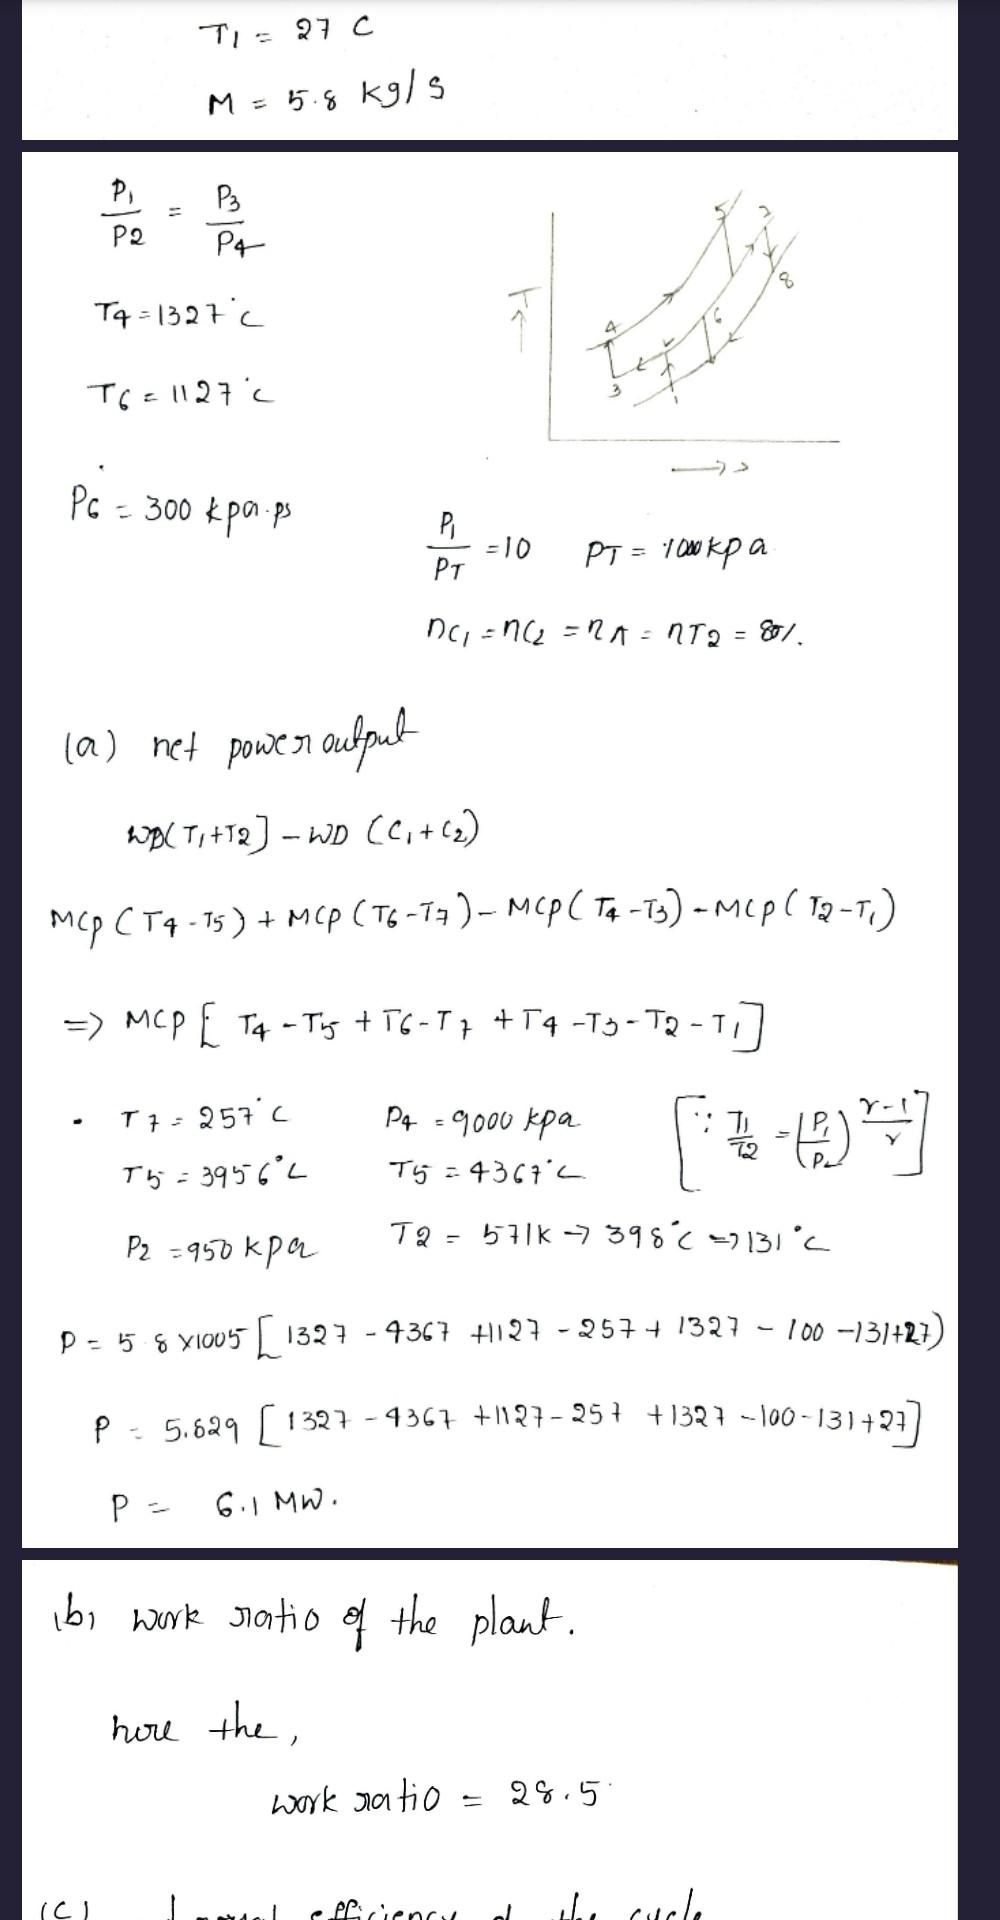 T1 = 27 C
M = 5.8 kg/s
P1/P2 = P3/P4
T4 = 1327°C
T6 = 1127°C
P6 = 300 kpa.ps
T
5
7
8
4
6
3
1
P1/PT = 10 PT = 1000kpa
nC1 = nC2 = nA = nT2 = 80%.
(a) net power output
WD(T1+T2] - WD (C1+C2)
MCp (T4-T5) + MCp (T6-T7) - MCp (T4-T3) - MCp (T2-T1)
=> MCP [ T4 - T5 + T6 - T7 + T4 - T3 - T2 - T1]
• T7 = 257°C P4 = 9000 kpa [∵ T1/T2 = (P1/P2)^(γ-1/γ)]
T5 = 3956°C T5 = 4367°C
P2 = 950 kpa T2 = 571k → 398°C => 131°C
P = 5.8 x1005 [1327 - 4367 +1127 - 257 + 1327 - 100 -131+27)
P = 5.829 [1327 - 4367 +1127 - 257 +1327 -100-131+27]
P = 6.1 MW.
(b) work ratio of the plant.
here the,
work ratio = 28.5
(c) efficiency of the cycle